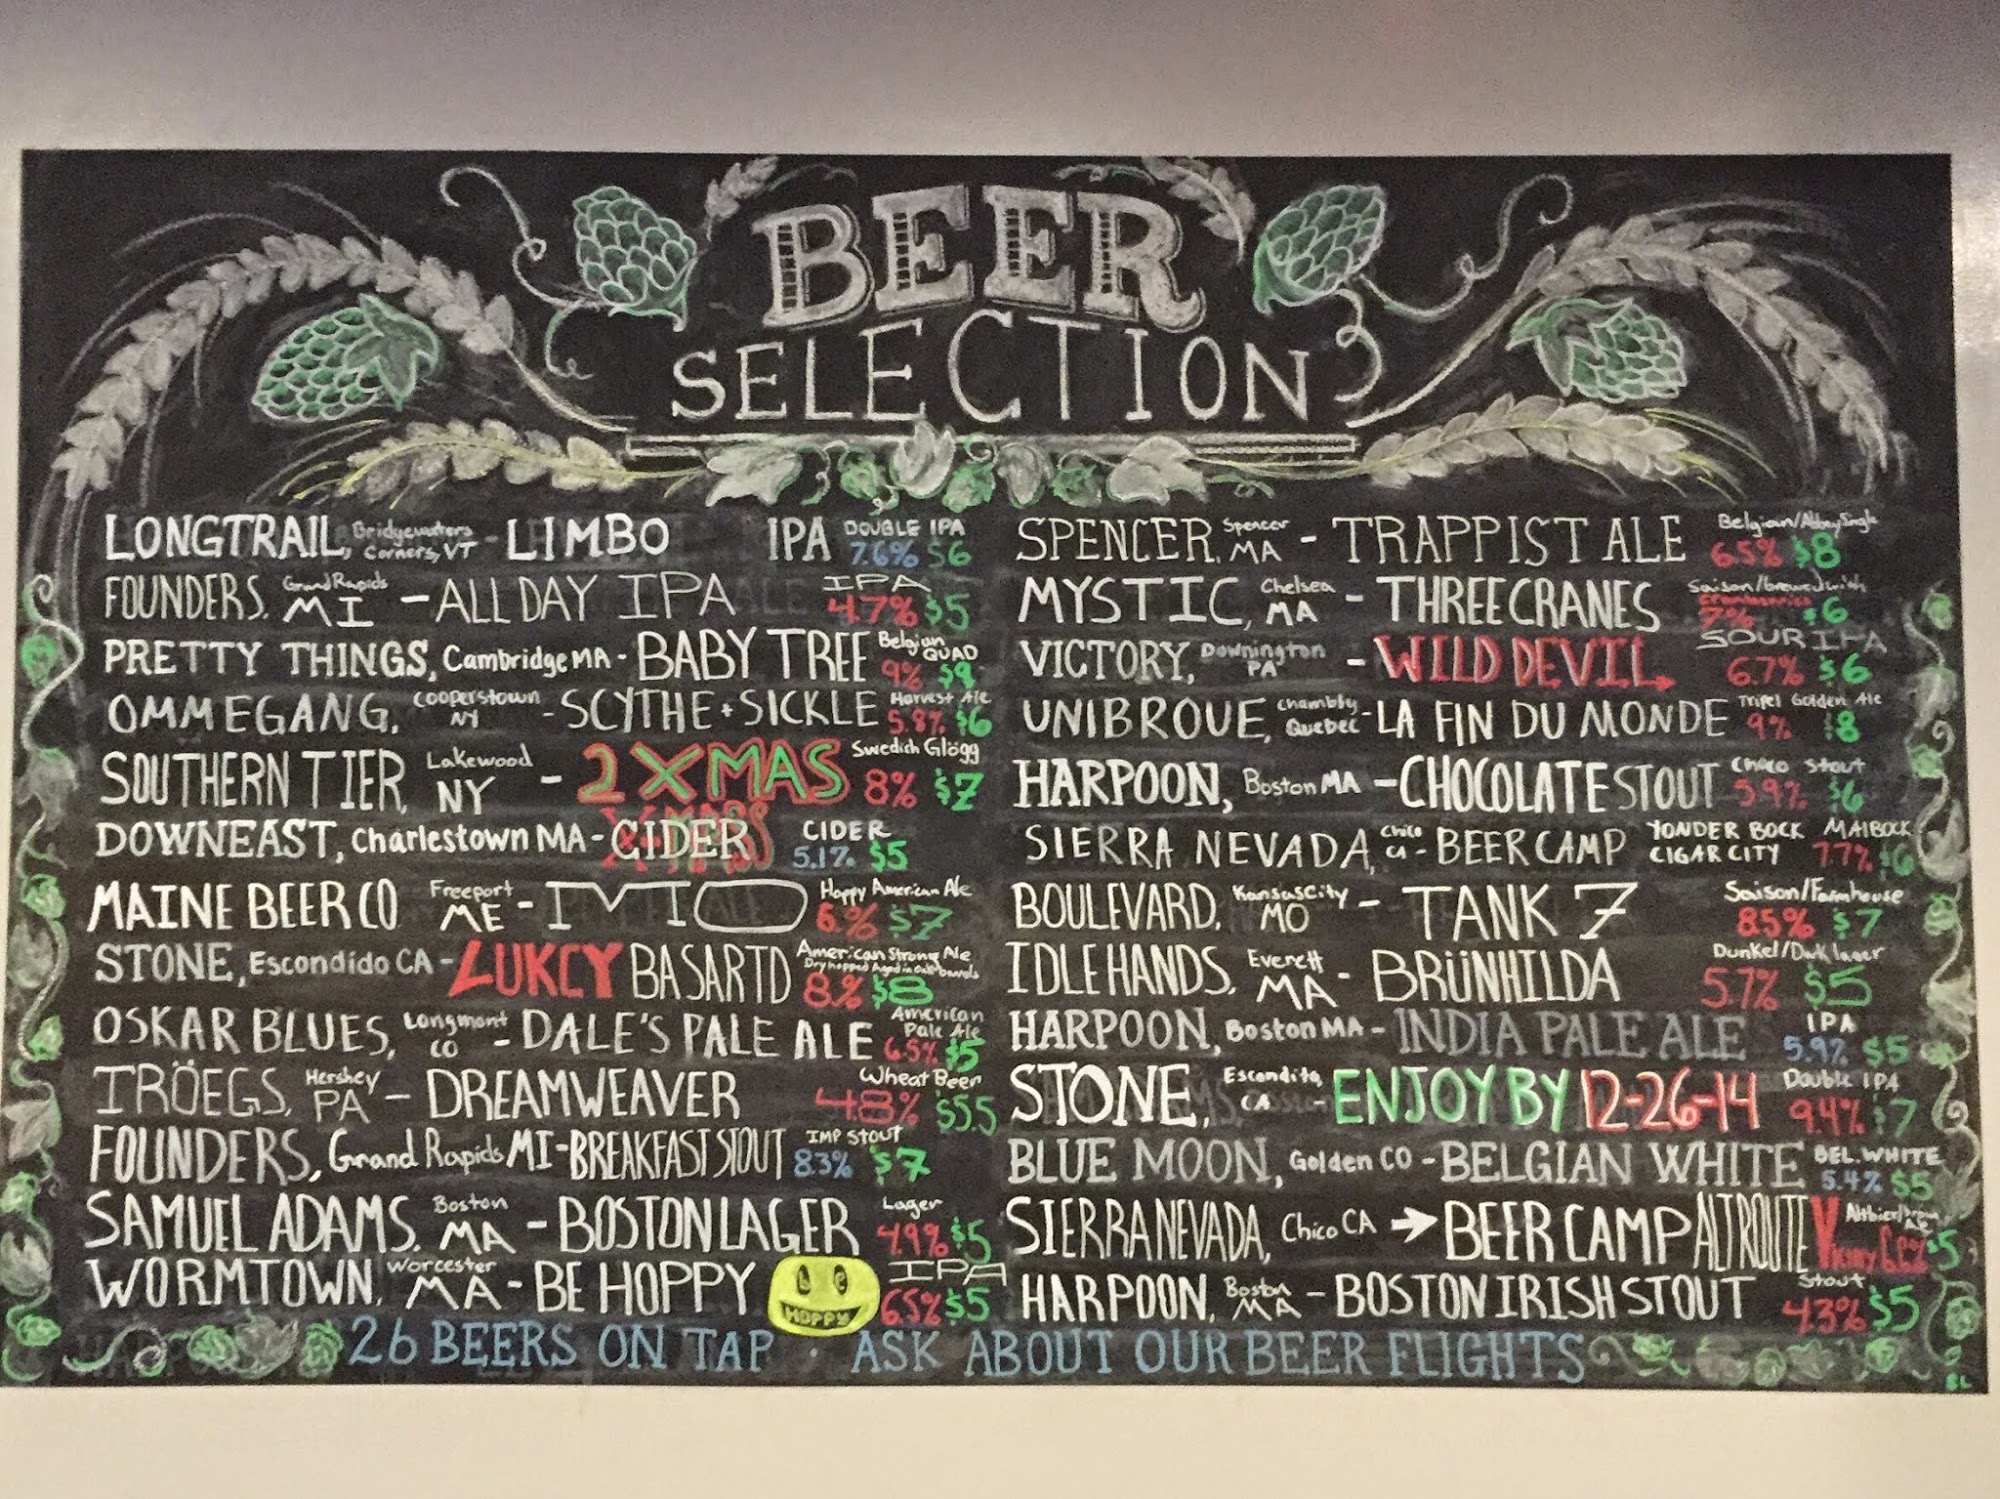 BEER
SELECTION
LONGTRAIL, Bridgewaters Corners, VT - LIMBO IPA DOUBLE IPA 7.6% $6
FOUNDERS, Grand Rapids MI - ALL DAY IPA IPA 4.7% $5
PRETTY THINGS, Cambridge MA - BABY TREE Belgian QUAD 9% $9
OMMEGANG, Cooperstown NY - SCYTHE + SICKLE Harvest Ale 5.8% $6
SOUTHERN TIER, Lakewood NY - 2 XMAS Swedish Glögg 8% $7
DOWNEAST, Charlestown MA - CIDER CIDER 5.1% $5
MAINE BEER CO Freeport ME - MO Hoppy American Ale 6.% $7
STONE, Escondido CA - LUKCY BASARTD American Strong Ale Dry hopped Aged in oak barrels 8.% $8
OSKAR BLUES, Longmont CO - DALE'S PALE ALE American Pale Ale 6.5% $5
TRÖEGS, Hershey PA - DREAMWEAVER Wheat Beer 4.8% $5.5
FOUNDERS, Grand Rapids MI - BREAKFAST STOUT IMP STOUT 8.3% $7
SAMUEL ADAMS, Boston MA - BOSTON LAGER Lager 4.9% $5
WORMTOWN, Worcester MA - BE HOPPY be HOPPY IPA 6.5% $5
SPENCER, Spencer MA - TRAPPIST ALE Belgian/Abbey Single 6.5% $8
MYSTIC, Chelsea MA - THREE CRANES Saison/brewed with cranberries 7% $6
VICTORY, Downington PA - WILD DEVIL SOUR IPA 6.7% $6
UNIBROUE, Chambly Quebec - LA FIN DU MONDE Tripel Golden Ale 9% $8
HARPOON, Boston MA - CHOCOLATE STOUT Choco Stout 5.9% $6
SIERRA NEVADA, Chico CA - BEER CAMP YONDER BOCK CIGAR CITY MAIBOCK 7.7% $6
BOULEVARD, Kansas City MO - TANK 7 Saison/Farmhouse 8.5% $7
IDLE HANDS, Everett MA - BRÜNHILDA Dunkel/Dark lager 5.7% $5
HARPOON, Boston MA - INDIA PALE ALE IPA 5.9% $5
STONE, Escondito, CA - ENJOY BY 12-26-14 Double IPA 9.4% $7
BLUE MOON, Golden CO - BELGIAN WHITE BEL. WHITE 5.4% $5
SIERRA NEVADA, Chico CA → BEER CAMP ALT ROUTE Victory Altbier/Brown Ale 6.6% $5
HARPOON, Boston MA - BOSTON IRISH STOUT Stout 4.3% $5
26 BEERS ON TAP · ASK ABOUT OUR BEER FLIGHTS